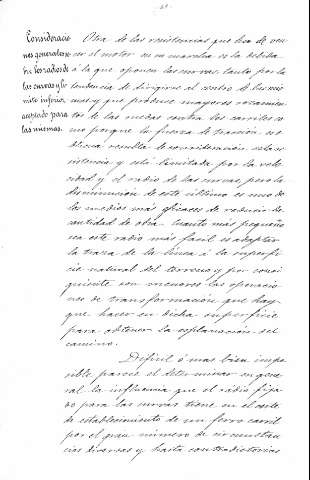 Consideracio
nes generales so
bre los radios de
las curvas y lí
mite inferior
aceptado para
las mismas.
Otra de las resistencias que ha de ven
cer el motor en su marcha es la debida
á la que oponen las curvas, tanto por la
tendencia de dirigirse al centro de las mis
mas y que produce mayores rozamien
tos de las ruedas contra los carriles co
mo porque la fuerza de tracción es
oblicua resulta de consideración esta re
sistencia y está limitada por la velo
cidad y el radio de las curvas pero la
disminución de este último es uno de
los medios más eficaces de reducir la
cantidad de obra. Cuanto más pequeño
sea este radio más facil es adaptar
la traza de la línea á la superfi
cie natural del terreno y por consi
guiente son menores las operacio
nes de transformación que hay
que hacer en dicha superficie
para obtener la esplanación del
camino.
Dificil ó mas bien impo
sible parece el determinar en gene
ral la influencia que el radio fija
do para las curvas tiene en el coste
de establecimiento de un ferro carril
por el gran número de circunstan
cias diversas y hasta contradictorias